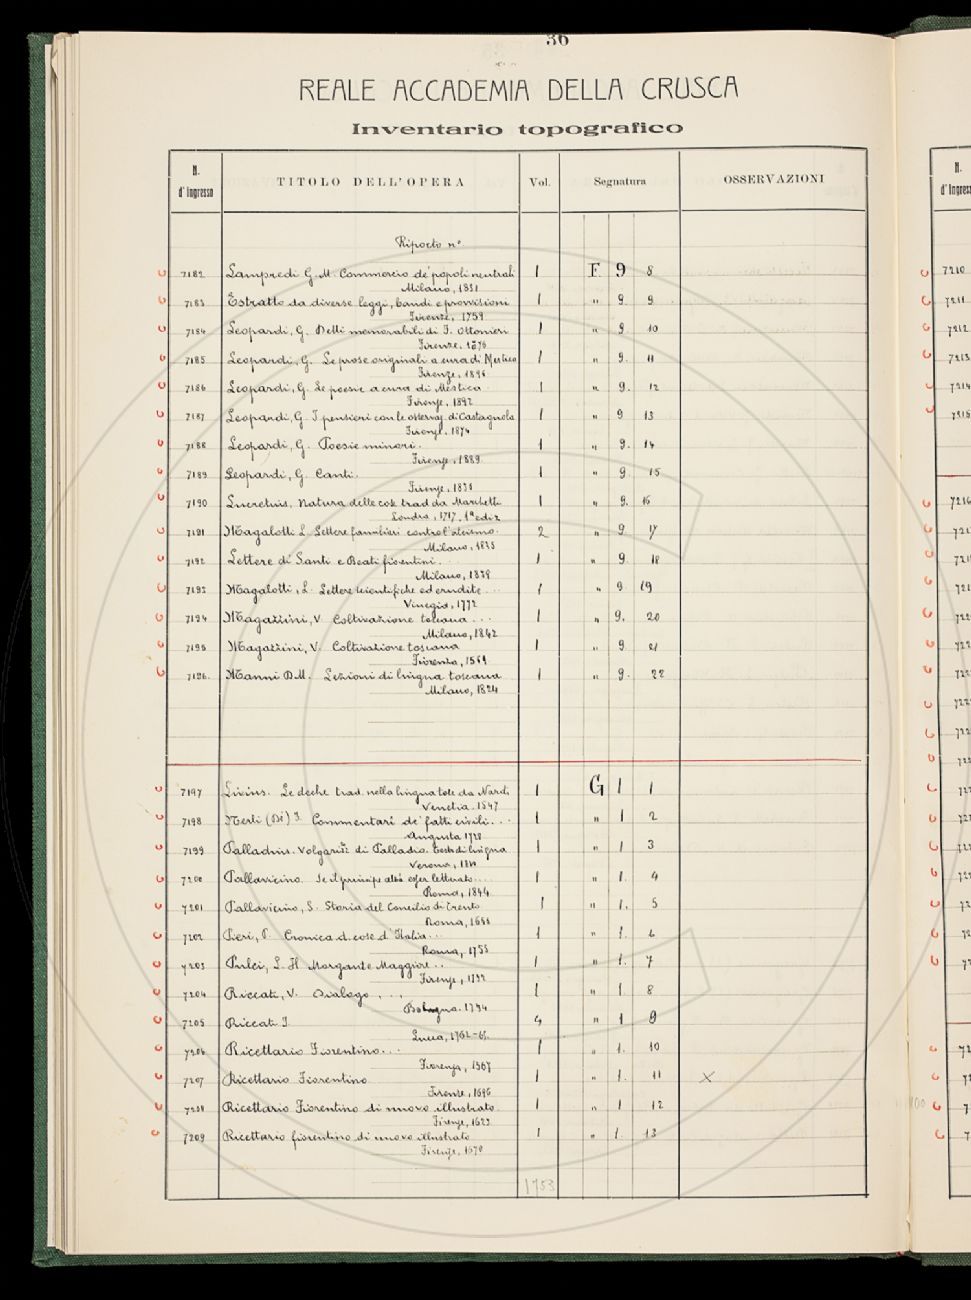 36
REALE ACCADEMIA DELLA CRUSCA
Inventario topografico
N. d'Ingresso TITOLO DELL'OPERA Vol. Segnatura OSSERVAZIONI
Riporto n°
7182 Lampredi G. M. Commercio de' popoli neutrali 1 F 9 8
Milano, 1831
7183 Estratto da diverse leggi, bandi e provvisioni 1 " 9. 9
Firenze, 1759
7184 Leopardi, G. Detti memorabili di F. Ottonieri 1 " 9 10
Firenze,
7185 Leopardi, G. Le prose originali a cura di Mestica 1 " 9. 11
Firenze, 1896
7186 Leopardi, G. Le poesie a cura di Mestica. 1 " 9. 12
Firenze, 1892
7187 Leopardi, G I pensieri con le osservaz. di Castagnola 1 " 9 13
Firenze. 1874
7188 Leopardi, G. Poesie minori. 1 " 9. 14
Firenze, 1889.
7189 Leopardi, G. Canti. 1 " 9. 15
Firenze,
7190 Lucretius. Natura delle cose trad da Marchetti 1 " 9. 16
Londra, 1717. 1ª ediz
7191 Magalotti L. Lettere familiari contro l'ateismo. 2 " 9 17
Milano,
7192 Lettere di Santi e Beati fiorentini. 1 " 9 18
Milano, 1839
7193 Magalotti, L. Lettere scientifiche ed erudite ... 1 " 9 19
Venezia, 1772
7194 Magazzini, V. Coltivazione toscana ... 1 " 9. 20
Milano, 1842
7195 Magazzini, V. Coltivazione toscana 1 " 9 21
Fiorenza,
7196. Manni D. M. Lezioni di lingua toscana 1 " 9. 22
Milano, 1824
7197 Livius. Le deche trad. nella lingua tosc. da Nardi 1 G 1 1
Venetia. 1547
7198 Nerli (Dei) F. Commentari de' fatti civili... 1 " 1 2
Augusta 1728
7199 Palladius. Volgarizz. di Palladio. testo di lingua 1 " 1 3
Verona,
7200 Pallavicino. Se il principe debba esser letterato.... 1 " 1. 4
Roma, 1844
7201 Pallavicino, S. Storia del Concilio di Trento 1 " 1. 5
Roma,
7202 Pieri, P. Cronica d. cose d'Italia... 1 " 1. 6
Roma, 1755
7203 Pulci, L. Il Morgante Maggiore.. 1 " 1. 7
Firenze, 1732
7204 Riccati, V. Dialogo ... 1 " 1 8
Bologna.
7205 Riccati J. 4 " 1 9
Lucca,
7206 Ricettario Fiorentino... 1 " 1. 10
Fiorenza, 1567
7207 Ricettario Fiorentino 1 " 1. 11 ×
Firenze, 1696
7208 Ricettario Fiorentino di nuovo illustrato. 1 " 1 12
Firenze, 1623
7209 Ricettario fiorentino di nuovo illustrato 1 " 1. 13
Firenze, 1670
1753
N. d'Ingres
7210
7211
7212
7213
7214
7215
7216